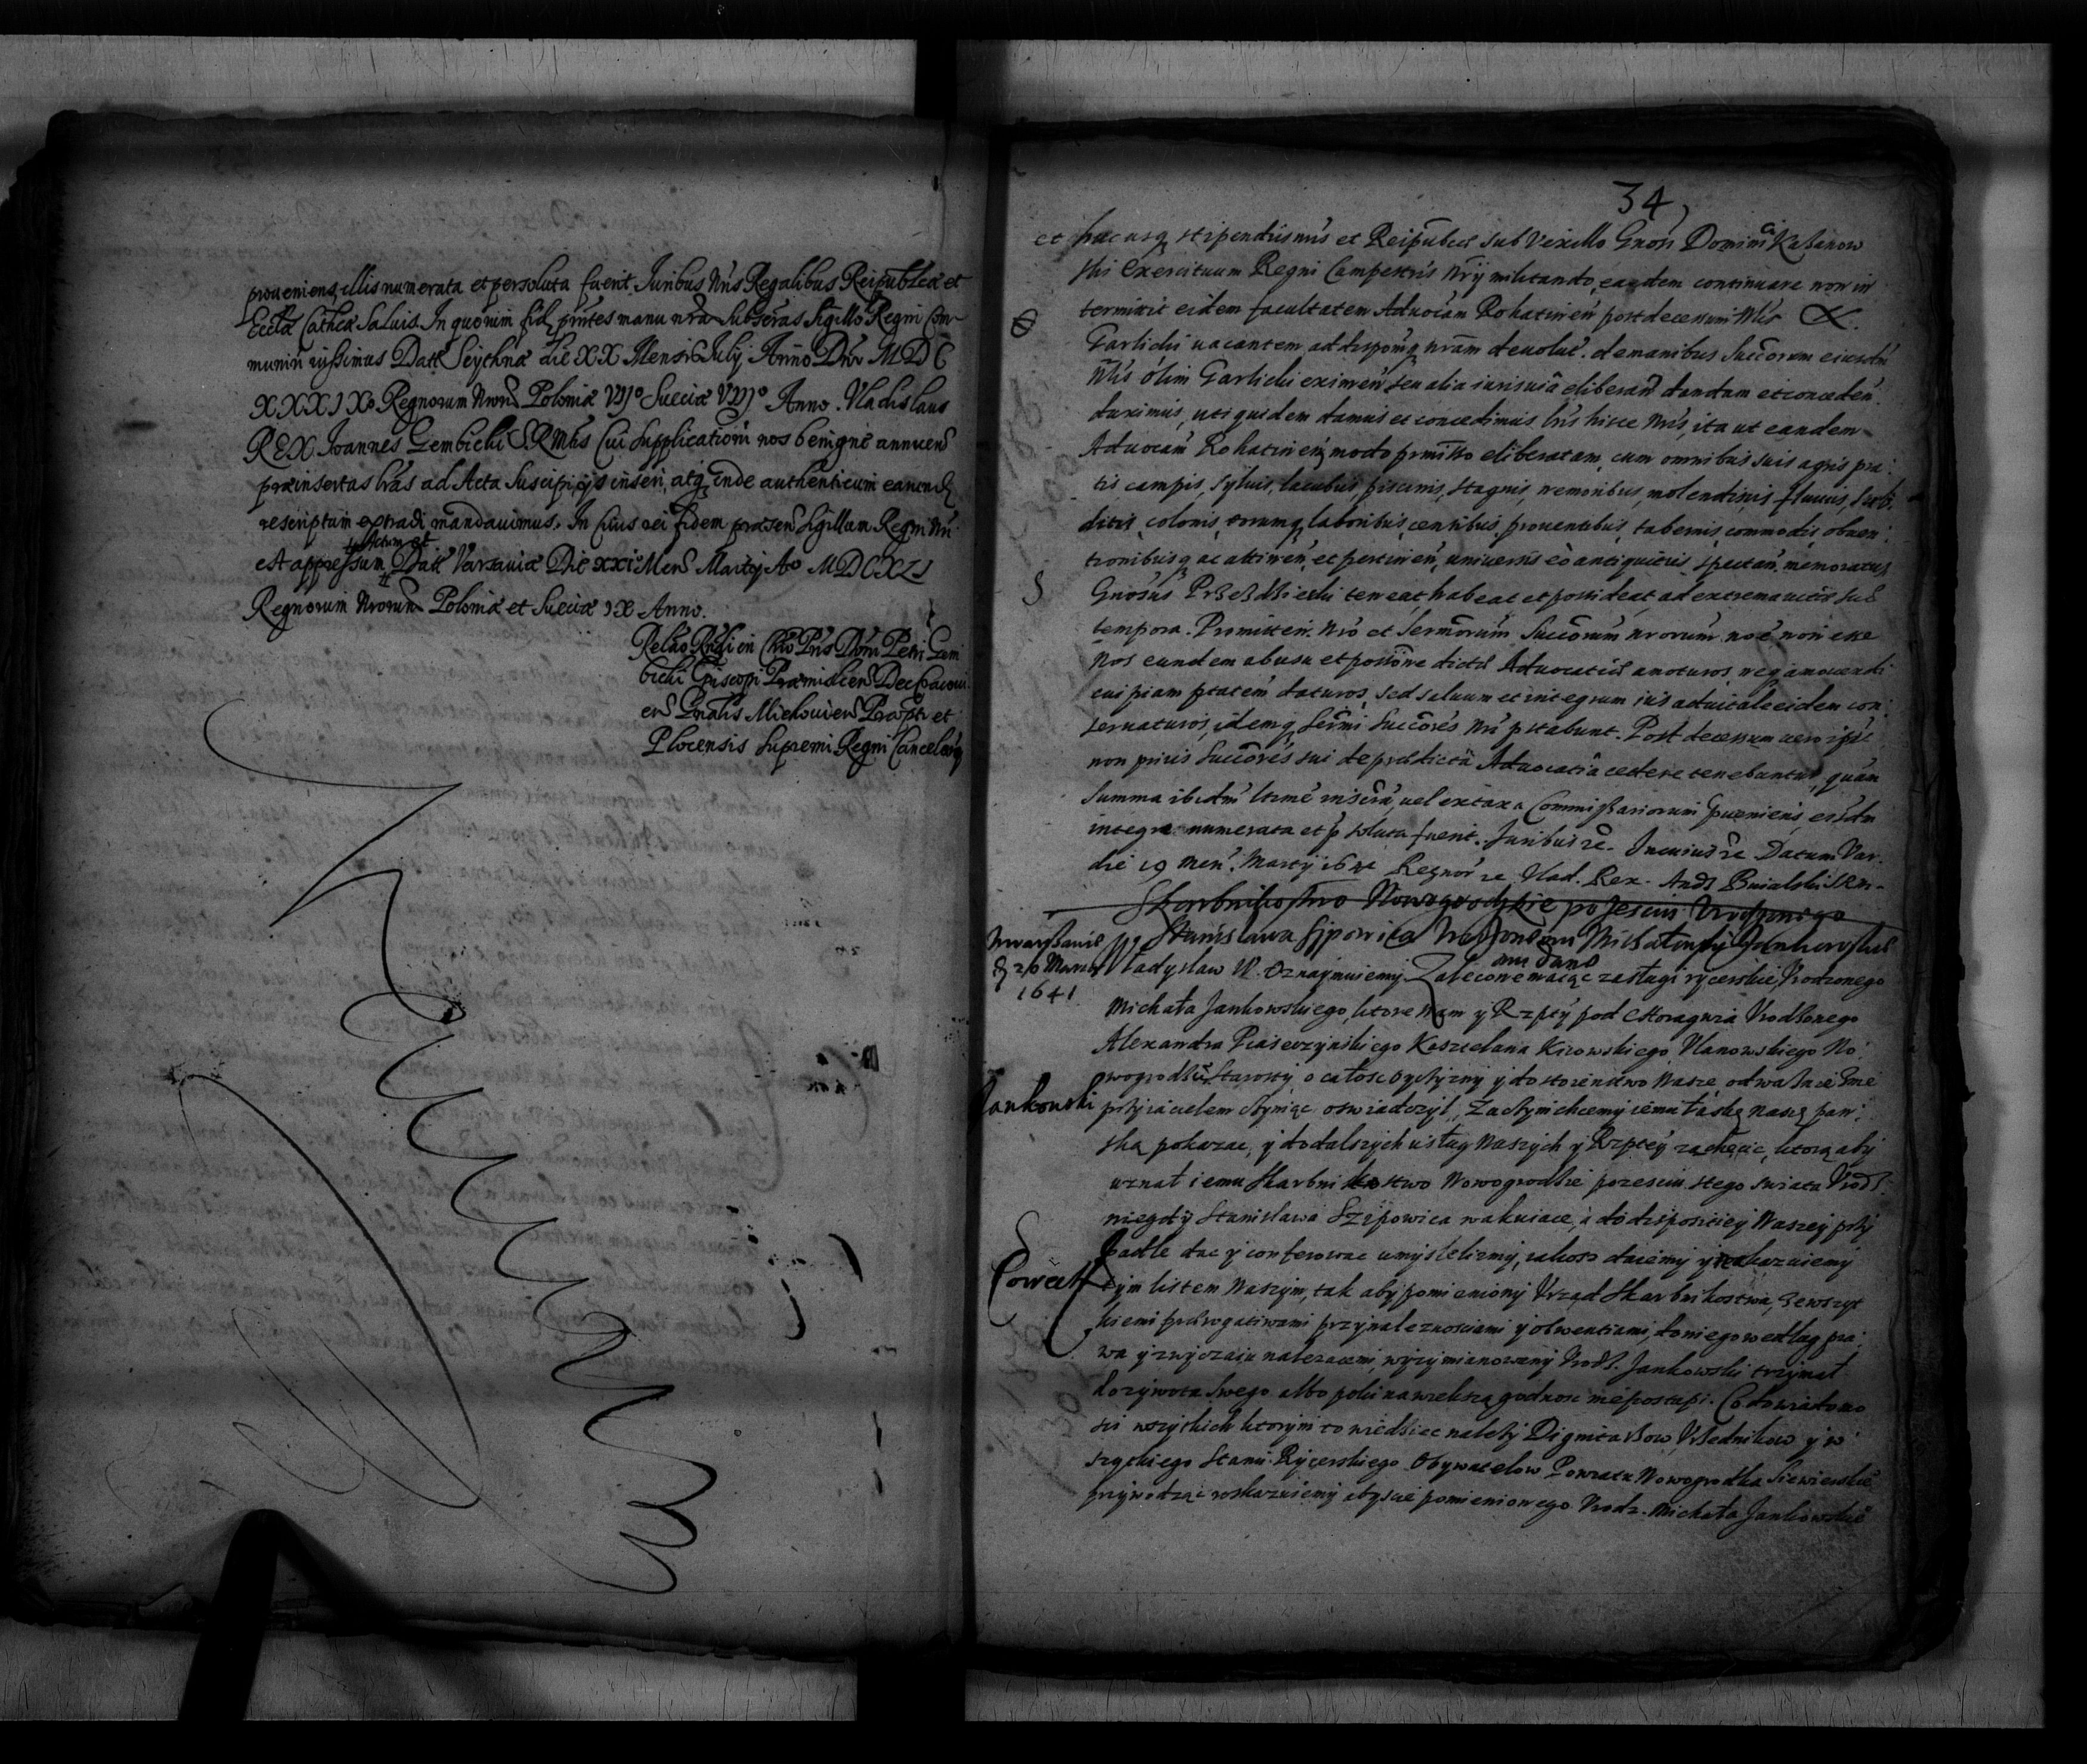 proueniens, illis numerata et persoluta fuerit. Iuribus Nris Regalibus Reipublcæ et
Ecclæ Cathcæ Saluis. In quorum fid prntes manu nra Subscras Sigillo Regni Com-
muniri iussimus Datt Seychnæ die XX Mensis July Anno Dni MDC
XXXIXo Regnorum Nrorũ Poloniæ VIJo Sueciæ VIIJo Anno. Vladislaus
REX. Ioannes Gembicki SRMtis Cui Supplicationi nos benigne annuen
præinsertas lras ad Acta Suscipi, ijs inseri, atq inde authenticum earund
rescriptum extradi mandauimus. In Cuius rei fidem præsen Sigillum Regni Nri
est appressum Actum et Datt Varsauiæ Die XXI Mens Martij Ao MDCXLI
Regnorum Nrorum Poloniæ et Sueciæ IX Anno.
Relao Rndi in Chro Pris Dom Petri Gem
bicki Episcopi Præmislien Dec Cracoui
en Gnalis Miechouien Præpti et
Plocensis Supremi Regni Cancelarij
34
et hac usq stipendiis nris et Reipublcæ sub vexillo Gnosi Domini Kazanow
skis Exercituum Regni Campestris Nrij militando, eandem continuare non in
termisit eidem facultatem Aduocam Rohatinen post decessum Nlis
Garlicki vacantem ad disponq nram deuolu. de manibus Succorum eiusdm
Nlis olim Garlicki eximen seu alia iuris via eliberan dandam et conceden
duximus, uti quidem damus et concedimus lris hisce Nris, ita ut eandem
Aduocam Rohatinen modo prmisso eliberatam, cum omnibus suis agris pra
tis campis, syluis, lacubus, piscinis, stagnis, nemoribus, molendinis, fluuiis, Sub
ditis, colonis, eorumq laboribus, censibus, prouentibus, tabernis, commodis, obuen
tionibusq ac attinen, et pertinen, uniuersis eo antiquitus spectan. memoratus
Gnosus teneat habeat et possideat ad extrema uitæ suæ
tempora. Promitten. Nro et Sermorum Succorum nrorum noe non esse
Nos eundem ab usu et possione dictæ Aduocatiæ amoturos, neq amouendi
cuipiam ptatem daturos, sed saluum et integrum ius aduitale eidem con
seruaturos, idemq Sermi Succores Nri pstabunt. Post decessum uero ipsi
non prius Succores sui de prædicta Aduocatia cedere tenebuntur, quam
Summa ibidm ltime inscra, uel ex taxa Commissariorum pueniens, eisdm
integre numerata et psoluta fuerit. Juribus re. In cuius re Datum Var.
die 19 Men. Martij 1641 Regnor re Vlad. Rex. And
Skarbnikostwo Nowogrodzkie po zesciu Vrodzonego
Stanisława Vrodzonemu Michałowi Jankowskie
mu dano
W Warszawie
d 20 Marca
1641
Władysław IV. Oznaymuiemy Zalecone maiąc zasługi rycerskie Vrodzonego
Michała Jankowskiego, ktore Nam y Rzptey pod Choragwia Vrodzonego
Alexandra Piaseczynskiego Kasztelana Kiiowskiego Vlanowskiego No
wogrodzkie Starosty, o całosc oyczyzny y dostoienstwo Nasze, odwaznie sie
Jankowski
przyiacielem czyniąc oswiadczył, Zaczym chcemy iemu łaskę naszą pan
ską pokazac, y do dalszych usług Naszych y Rzptey zachęcic, ktorą aby
uznał iemu Skarbnikostwo Nowogrodzkie po zesciu z tego swiata Vrodz
niegdy Stanisława wakuiace, a do dispositiey Naszey przy
padłe dac y conferowac umyslilismy, iakosz daiemy y
Correctt
tym listem Naszym, tak aby pomieniony Vrząd Skarbnikostwa, ze wszyt
kiemi prærogatiwami przynaleznosciami y obwentiami, do niego wedlug pra
wa y zwyczaiu nalezacemi, wyzymianowany Vrodz. Jankowski trzymał
do zywota swego albo poki na wiekszą godnosc nie postapi. Co do wiadomo
sci wszytkich ktorym to wiedziec nalezy Dignitarzow, Vrzednikow y w
szytkiego Stanu Rycerskiego Obywatelow Powiatu Nowogrodka Siewierskie
przywodząc roskazuiemy abyscie pomienionego Vrodz. Michała Jankowskie